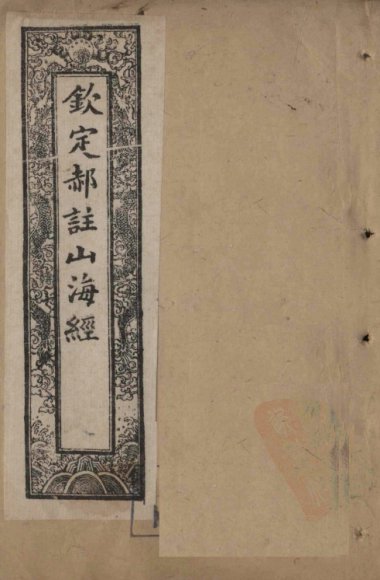 欽定郝註山海經